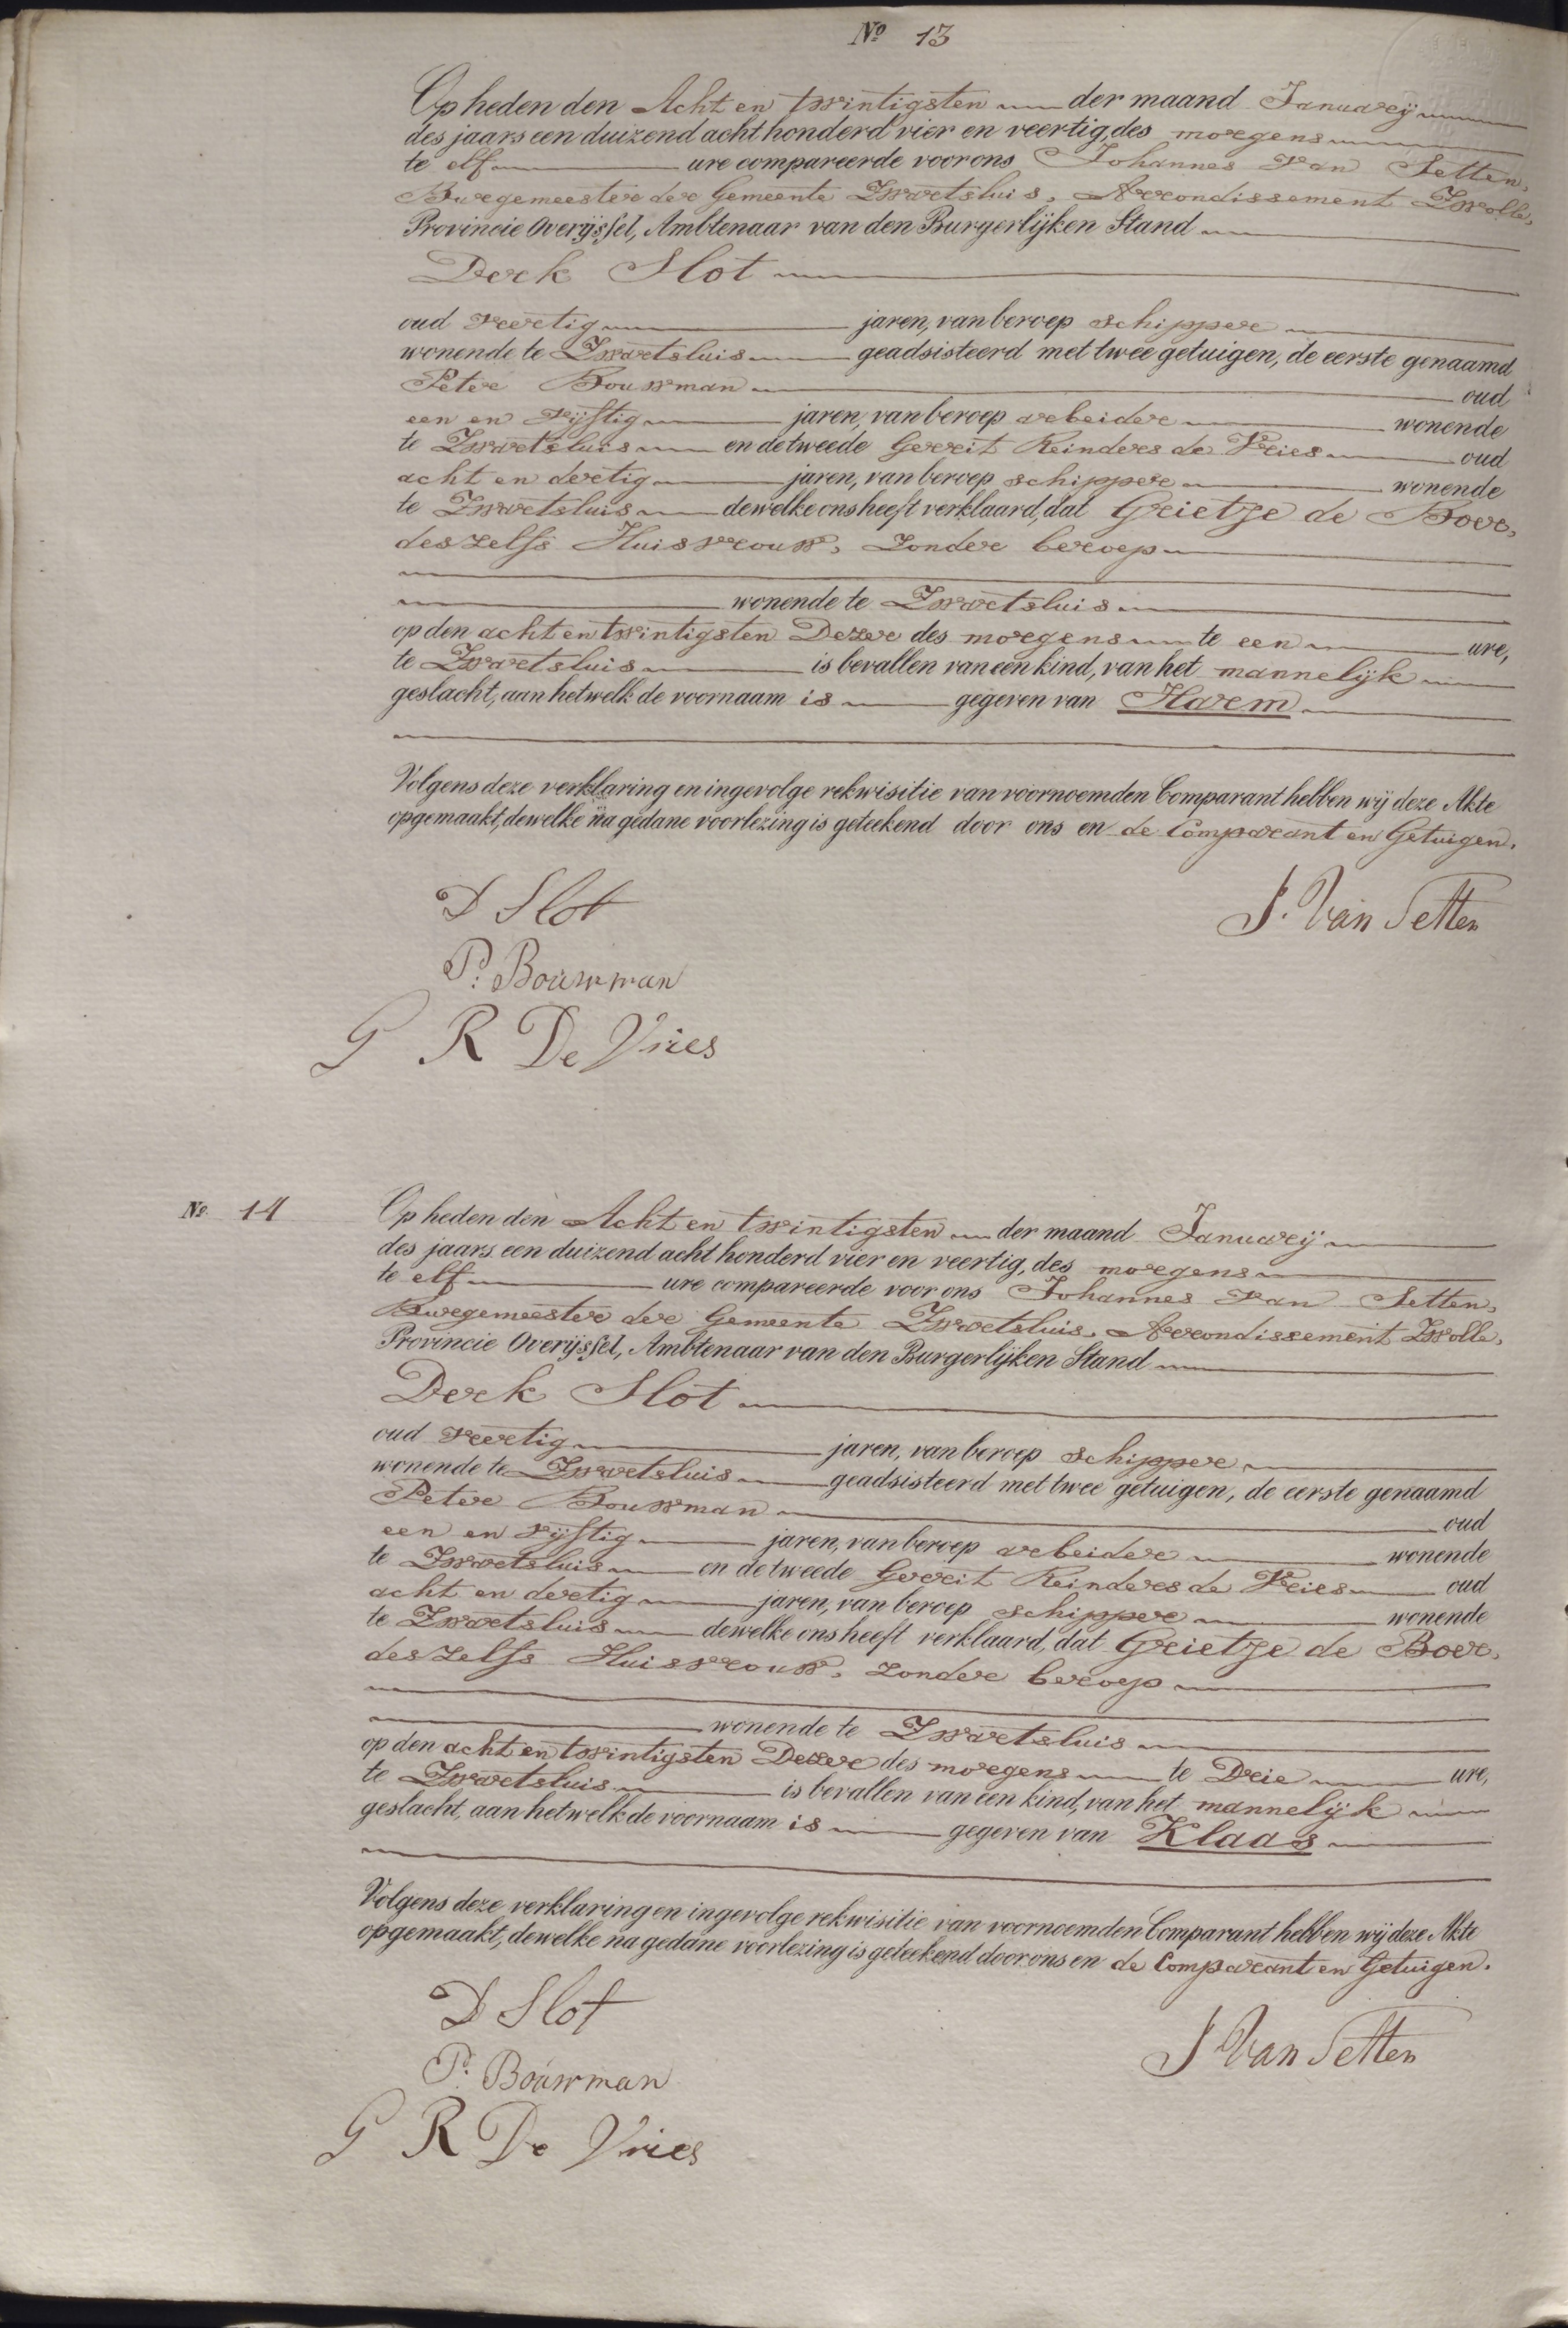 No 13
Op heden den Acht en twintigsten der maand Januarij
des jaars een duizend acht honderd vier en veertig, des morgens
te elf ure compareerde voor ons Johannes Van Setten,
Burgemeester der Gemeente Zwartsluis, Arrondissement Zwolle,
Provincie Overijssel, Ambtenaar van den Burgerlijken Stand
Derk Slot
oud veertig jaren, van beroep schipper
wonende te Zwartsluis geadsisteerd met twee getuigen, de eerste genaamd
Peter Bouwman oud
een en vijftig jaren, van beroep arbeider wonende
te Zwartsluis en de tweede Gerrit Reinders de Vries oud
acht en dertig jaren, van beroep schipper wonende
te Zwartsluis dewelke ons heeft verklaard, dat Grietje de Boer,
deszelfs Huisvrouw, zonder beroep
wonende te Zwartsluis
op den acht en twintigsten Dezer des morgens te een ure,
te Zwartsluis is bevallen van een kind, van het mannelijk
geslacht, aan hetwelk de voornaam is gegeven van Harm
Volgens deze verklaring en ingevolge rekwisitie van voornoemden Comparant hebben wij deze Akte
opgemaakt, dewelke na gedane voorlezing is geteekend door ons en de Comparant en Getuigen.
D Slot
J. Van Setten
P. Bouwman
G R De Vries
No. 14
Op heden den Acht en twintigsten der maand Januarij
des jaars een duizend acht honderd vier en veertig, des morgens
te elf ure compareerde voor ons Johannes Van Setten,
Burgemeester der Gemeente Zwartsluis, Arrondissement Zwolle,
Provincie Overijssel, Ambtenaar van den Burgerlijken Stand
Derk Slot
oud veertig jaren, van beroep schipper
wonende te Zwartsluis geadsisteerd met twee getuigen, de eerste genaamd
Peter Bouwman oud
een en vijftig jaren, van beroep arbeider wonende
te Zwartsluis en de tweede Gerrit Reinders de Vries oud
acht en dertig jaren, van beroep schipper wonende
te Zwartsluis dewelke ons heeft verklaard, dat Grietje de Boer,
deszelfs Huisvrouw, zonder beroep
wonende te Zwartsluis
op den acht en twintigsten Dezer des morgens te Drie ure,
te Zwartsluis is bevallen van een kind, van het mannelijk
geslacht, aan hetwelk de voornaam is gegeven van Klaas
Volgens deze verklaring en ingevolge rekwisitie van voornoemden Comparant hebben wij deze Akte
opgemaakt, dewelke na gedane voorlezing is geteekend door ons en de Comparant en Getuigen.
D Slot
J Van Setten
P. Bouwman
G R De Vries